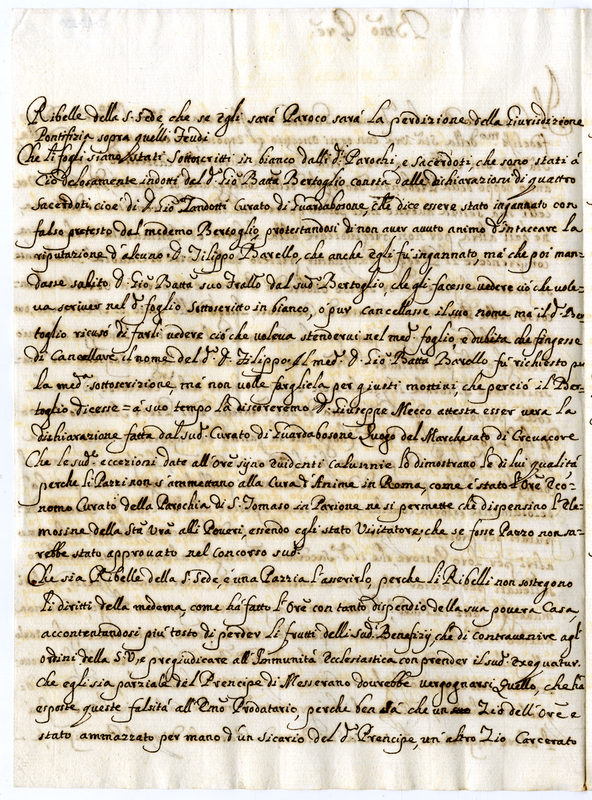 Ribelle della S. Sede che se egli sarà Paroco sarà la perdizione della Giurisdizione
Pontifizia sopra quelli Feudi
Che li fogli siano stati sottoscritti in bianco dalli d.i Parochi, e Sacerdoti che sono stati à
ciò delosamente indotti del d. Gio Batta Bertoglio consta dalle dichiarazioni di quattro
sacerdoti cioè di d. Gio Zandotti Curato di Guardabosone, che dice essere stato ingannato con
falso pretesto dal medemo Bertoglio protestandosi di non aver avuto animo d'intaccare la
riputazione d'alcuno. D. Filippo Barello, che anche egli fù ingannato, mà che poi man=
dasse subito D. Gio Batta suo Frallo dal sud. Bertoglio, che gli facesse vedere ciò che vole=
va scriver nel d. foglio sottoscritto in bianco, ò pur cancellasse il suo nome mà il d. Ber
toglio ricusò di farli vedere ciò che voleva stendervi nel med. foglio, e dubita che fingesse
di Cancellare il nome del d. D. Filippo. Al med. D. Gio Batta Barello fù richiesto pu
la med. sottoscrizione, mà non volle fargliela per giusti mottivi, che perciò il Ber=
toglio dicesse = à suo tempo la discorreremo D. Giuseppe Mecco attesta esser vera la
dichiarazione fatta dal sud. Curato di Guardabosone Luogo del Marchesato di Crevacore
Che le sud. eccezioni date all'Ore sijno evidenti calunnie lo dimostrano le di lui qualità
perche li Pazzi non s'ammettano alla Cura d'Anime in Roma, come è stato l'Ore Eco=
nomo Curato della Parochia di S. Tomaso in Parione ne si permette che dispensino l'Ele=
mosine della Sta Vra alli Poveri, essendo egli stato Visitatore, che se fosse Pazzo non sa=
rebbe stato approvato nel concorso sud.
Che sia Ribelle della S. Sede, è una Pazzia l'asserirlo, perche li Ribelli non sostegono
li diritti della medema, come hà fatto l'Ore con tanto dispendio della sua povera Casa,
accontentandosi più tosto di perder li frutti delli sud. Benefizij, che di contravenire agl'
ordini della S. V., e pregiudicare all'Immunità Ecclesiastica con prender il sud. exequatur.
Che egli sia parziale del Prencipe di Messerano dovrebbe vergognarsi quello, che hà
esposte queste falsità all'Emo Prodatario, perche ben sà che un Zio dell'Ore è
stato ammazzato per mano d'un sicario del d. Prencipe, un'altro Zio Carcerato